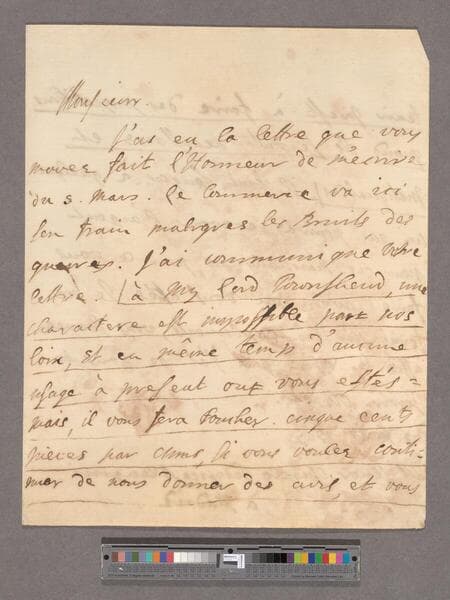 Monsieur.
J'as eu la lettre que vous
m'avez fait l'Honneur de m'ecrire
du 5. Mars. Le Commerce va ici
son train malgres les Bruits des
guerres. J'ai communiqué votre
lettre. à My Lord Townshend, une
charactere est impossible part nos
loix, et en même temp d'aucune
usage à present out vous estés=
mais, il vous fera toucher. cinque cents
pieces par Anns, si vous voules conti=
nuer de nous donner des avis, et vous